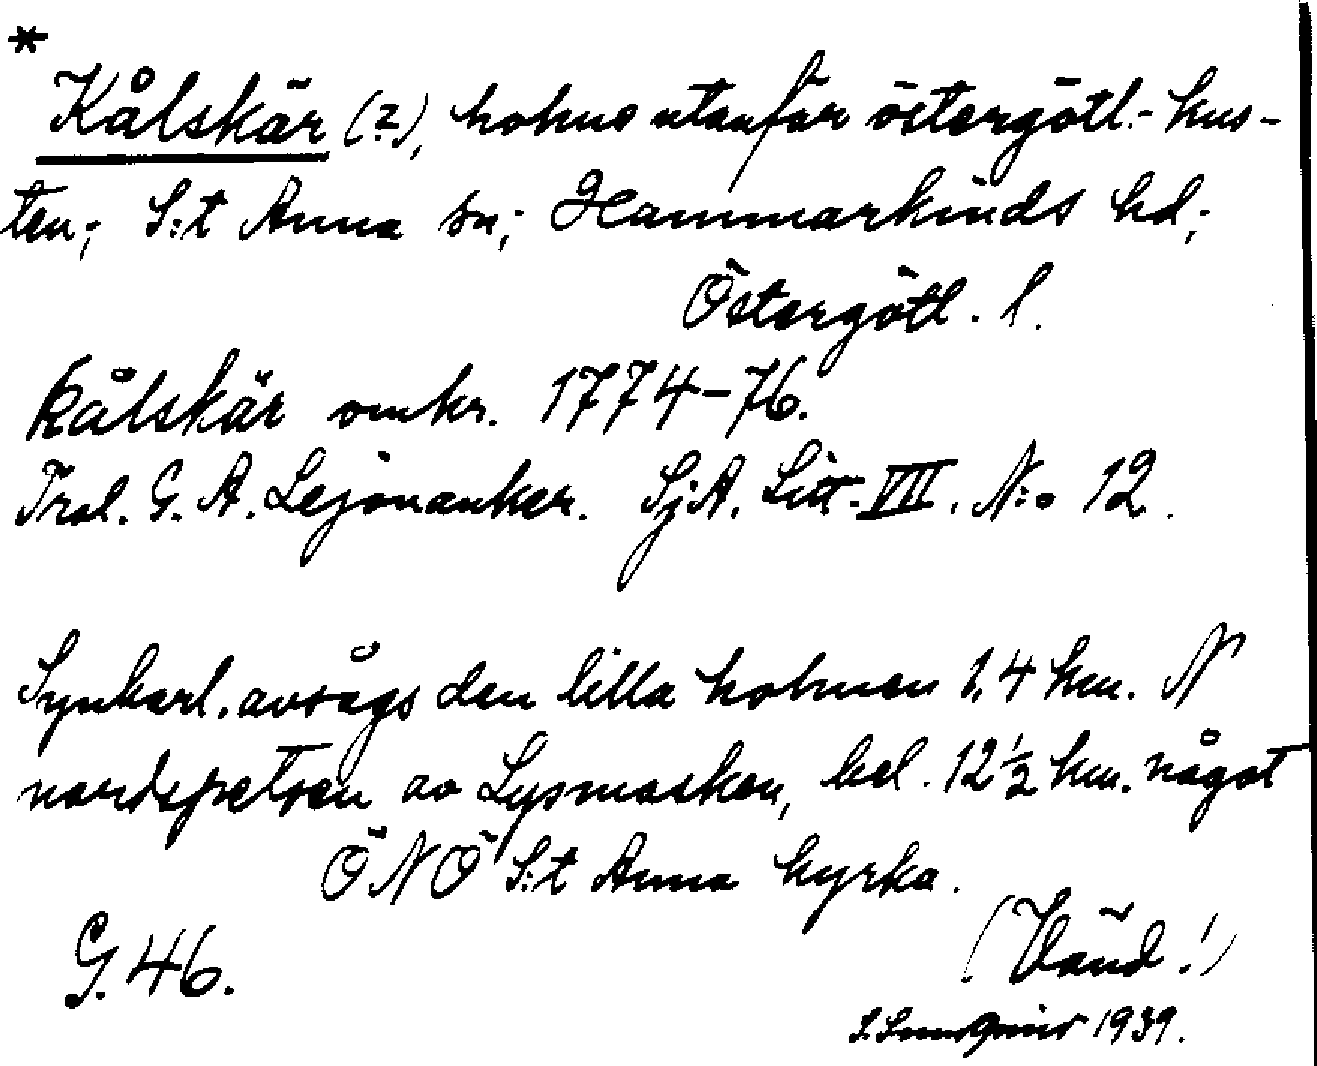 *
Kålskär (?), holme utanför östergötl.- kus-
ten; S:t Anna sn; Hammarkinds hd;
Östergötl. l.
Kålskär omkr. 1774-76.
Trol. G. A. Lejonanker. SjA. Litt. VII. N:o 12.
Synbarl. avsågs den lilla holmen 1,4 km. N
nordspetsen av Lysmasken, bel. 12 1/2 km. något
ÖNÖ S:t Anna kyrka.
(Vänd!)
G. 46.
1939.